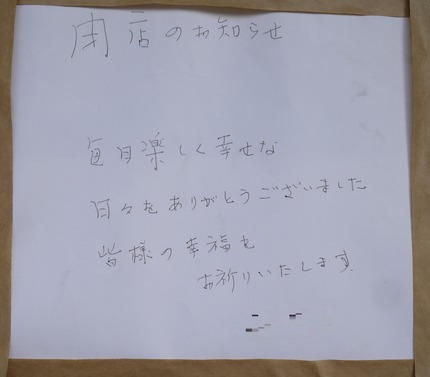 閉店のお知らせ
毎日楽しく幸せな
日々をありがとうございました
皆様の幸福を
お祈りいたします